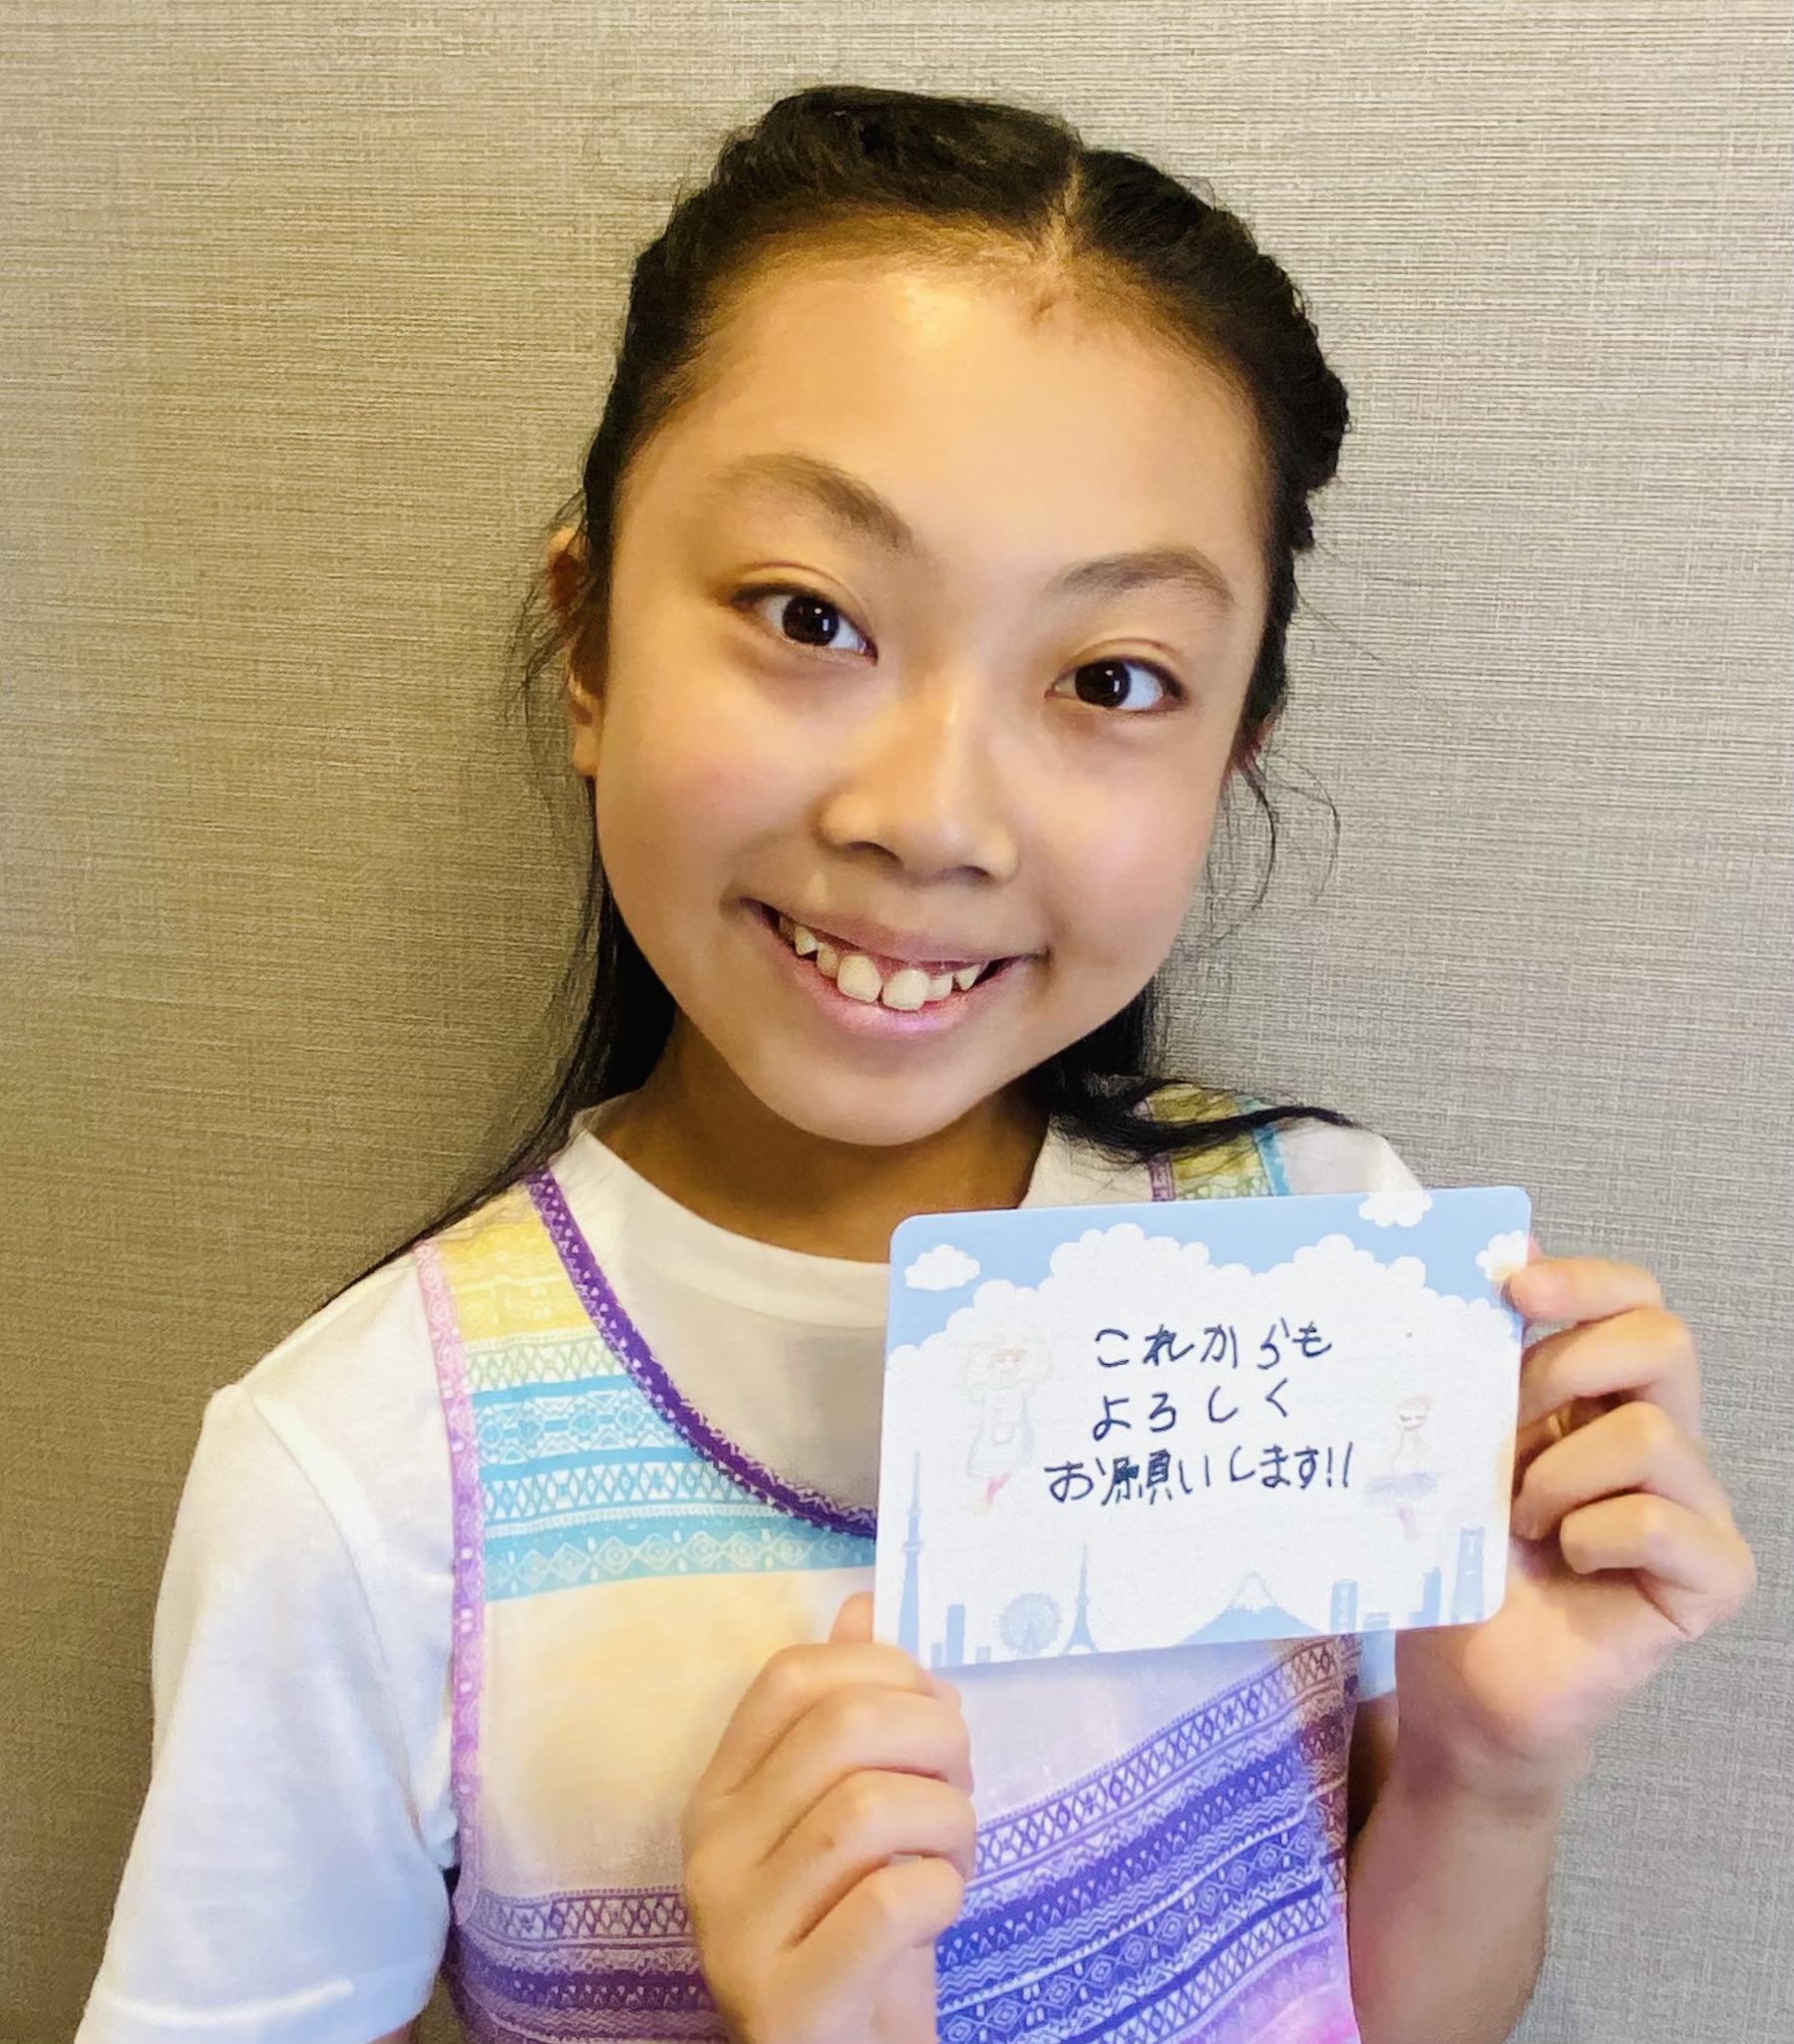 これからも
よろしく
お願いします!!